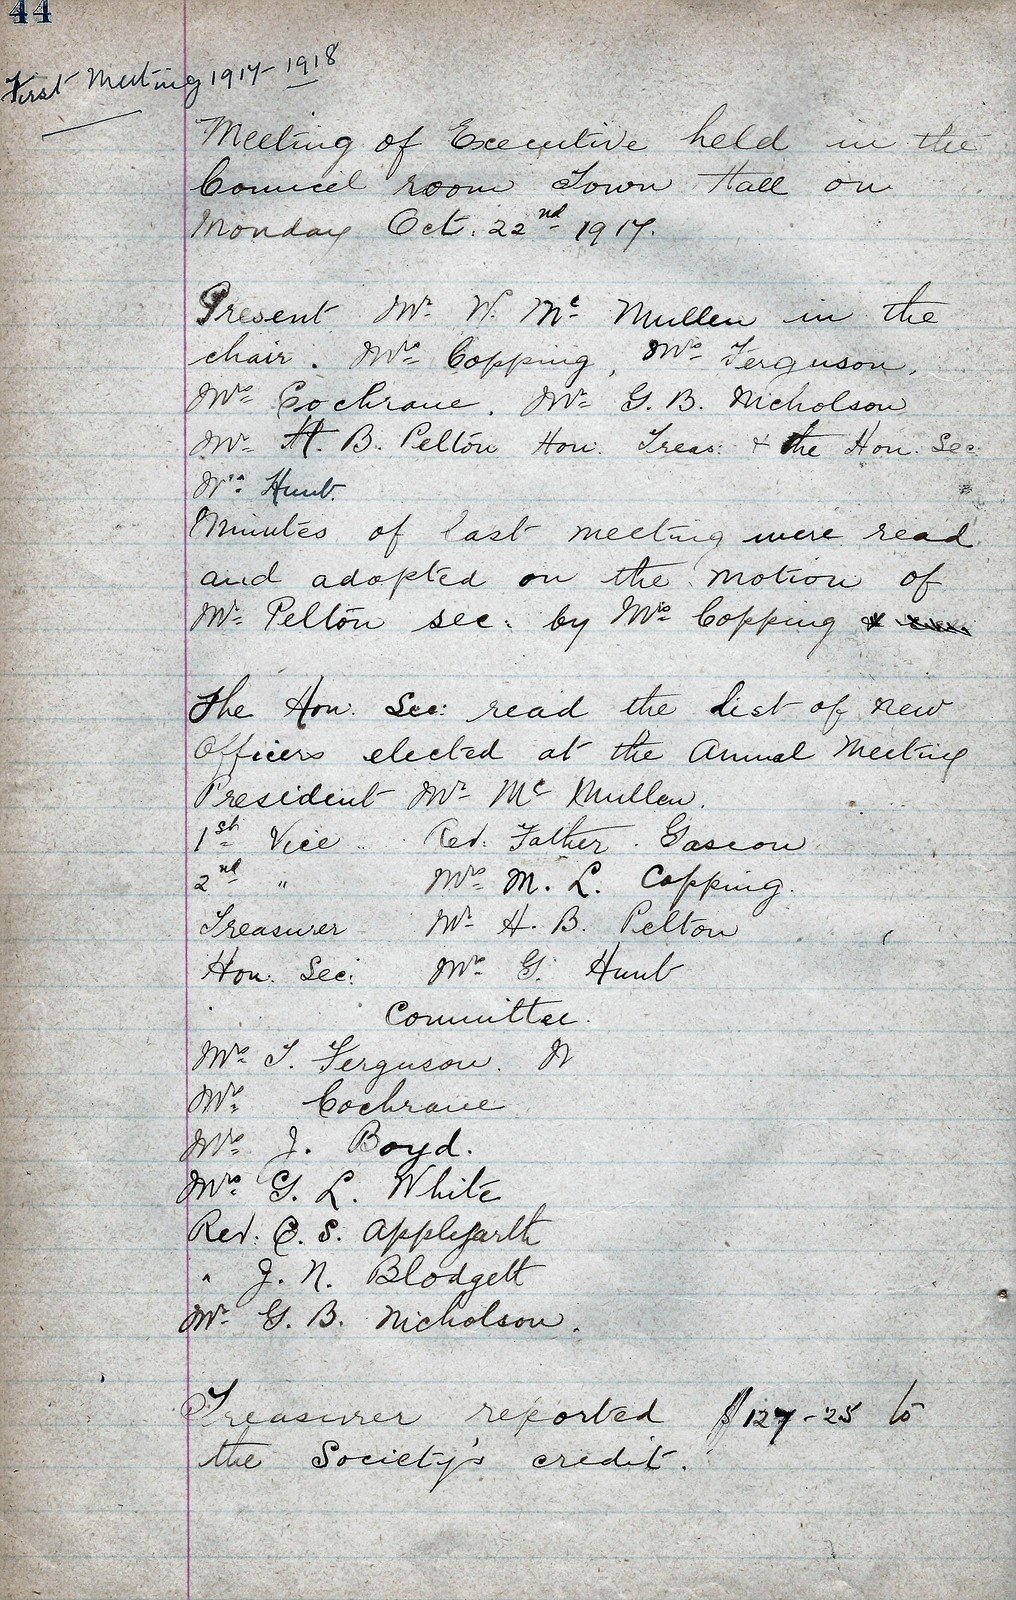 44
First Meeting 1917-1918
Meeting of Executive held in the
Council room Town Hall on
Monday Oct. 22nd 1917.
Present Mr. W. Mc Mullen in the
chair. Mrs Copping, Mrs Ferguson,
Mrs Cochrane, Mr. G. B. Nicholson
Mr. H. B. Pelton Hon. Treas: & the Hon. Sec.
Mrs Hunt.
Minutes of last meeting were read
and adopted on the motion of
Mr. Pelton sec. by Mrs Copping
The Hon. Sec: read the list of new
Officers elected at the Annual Meeting
President Mr. Mc Mullen.
1st Vice Rev. Father Gascon
2nd " Mrs M. L. Copping.
Treasurer Mr. H. B. Pelton
Hon. Sec: Mrs G. Hunt
Committee.
Mrs T. Ferguson.
Mrs Cochrane
Mrs J. Boyd.
Mrs G. L. White
Rev. C. S. Applegarth
" J. N. Blodgett
Mr. G. B. Nicholson.
Treasurer reported $127-25 to
the Society's credit.